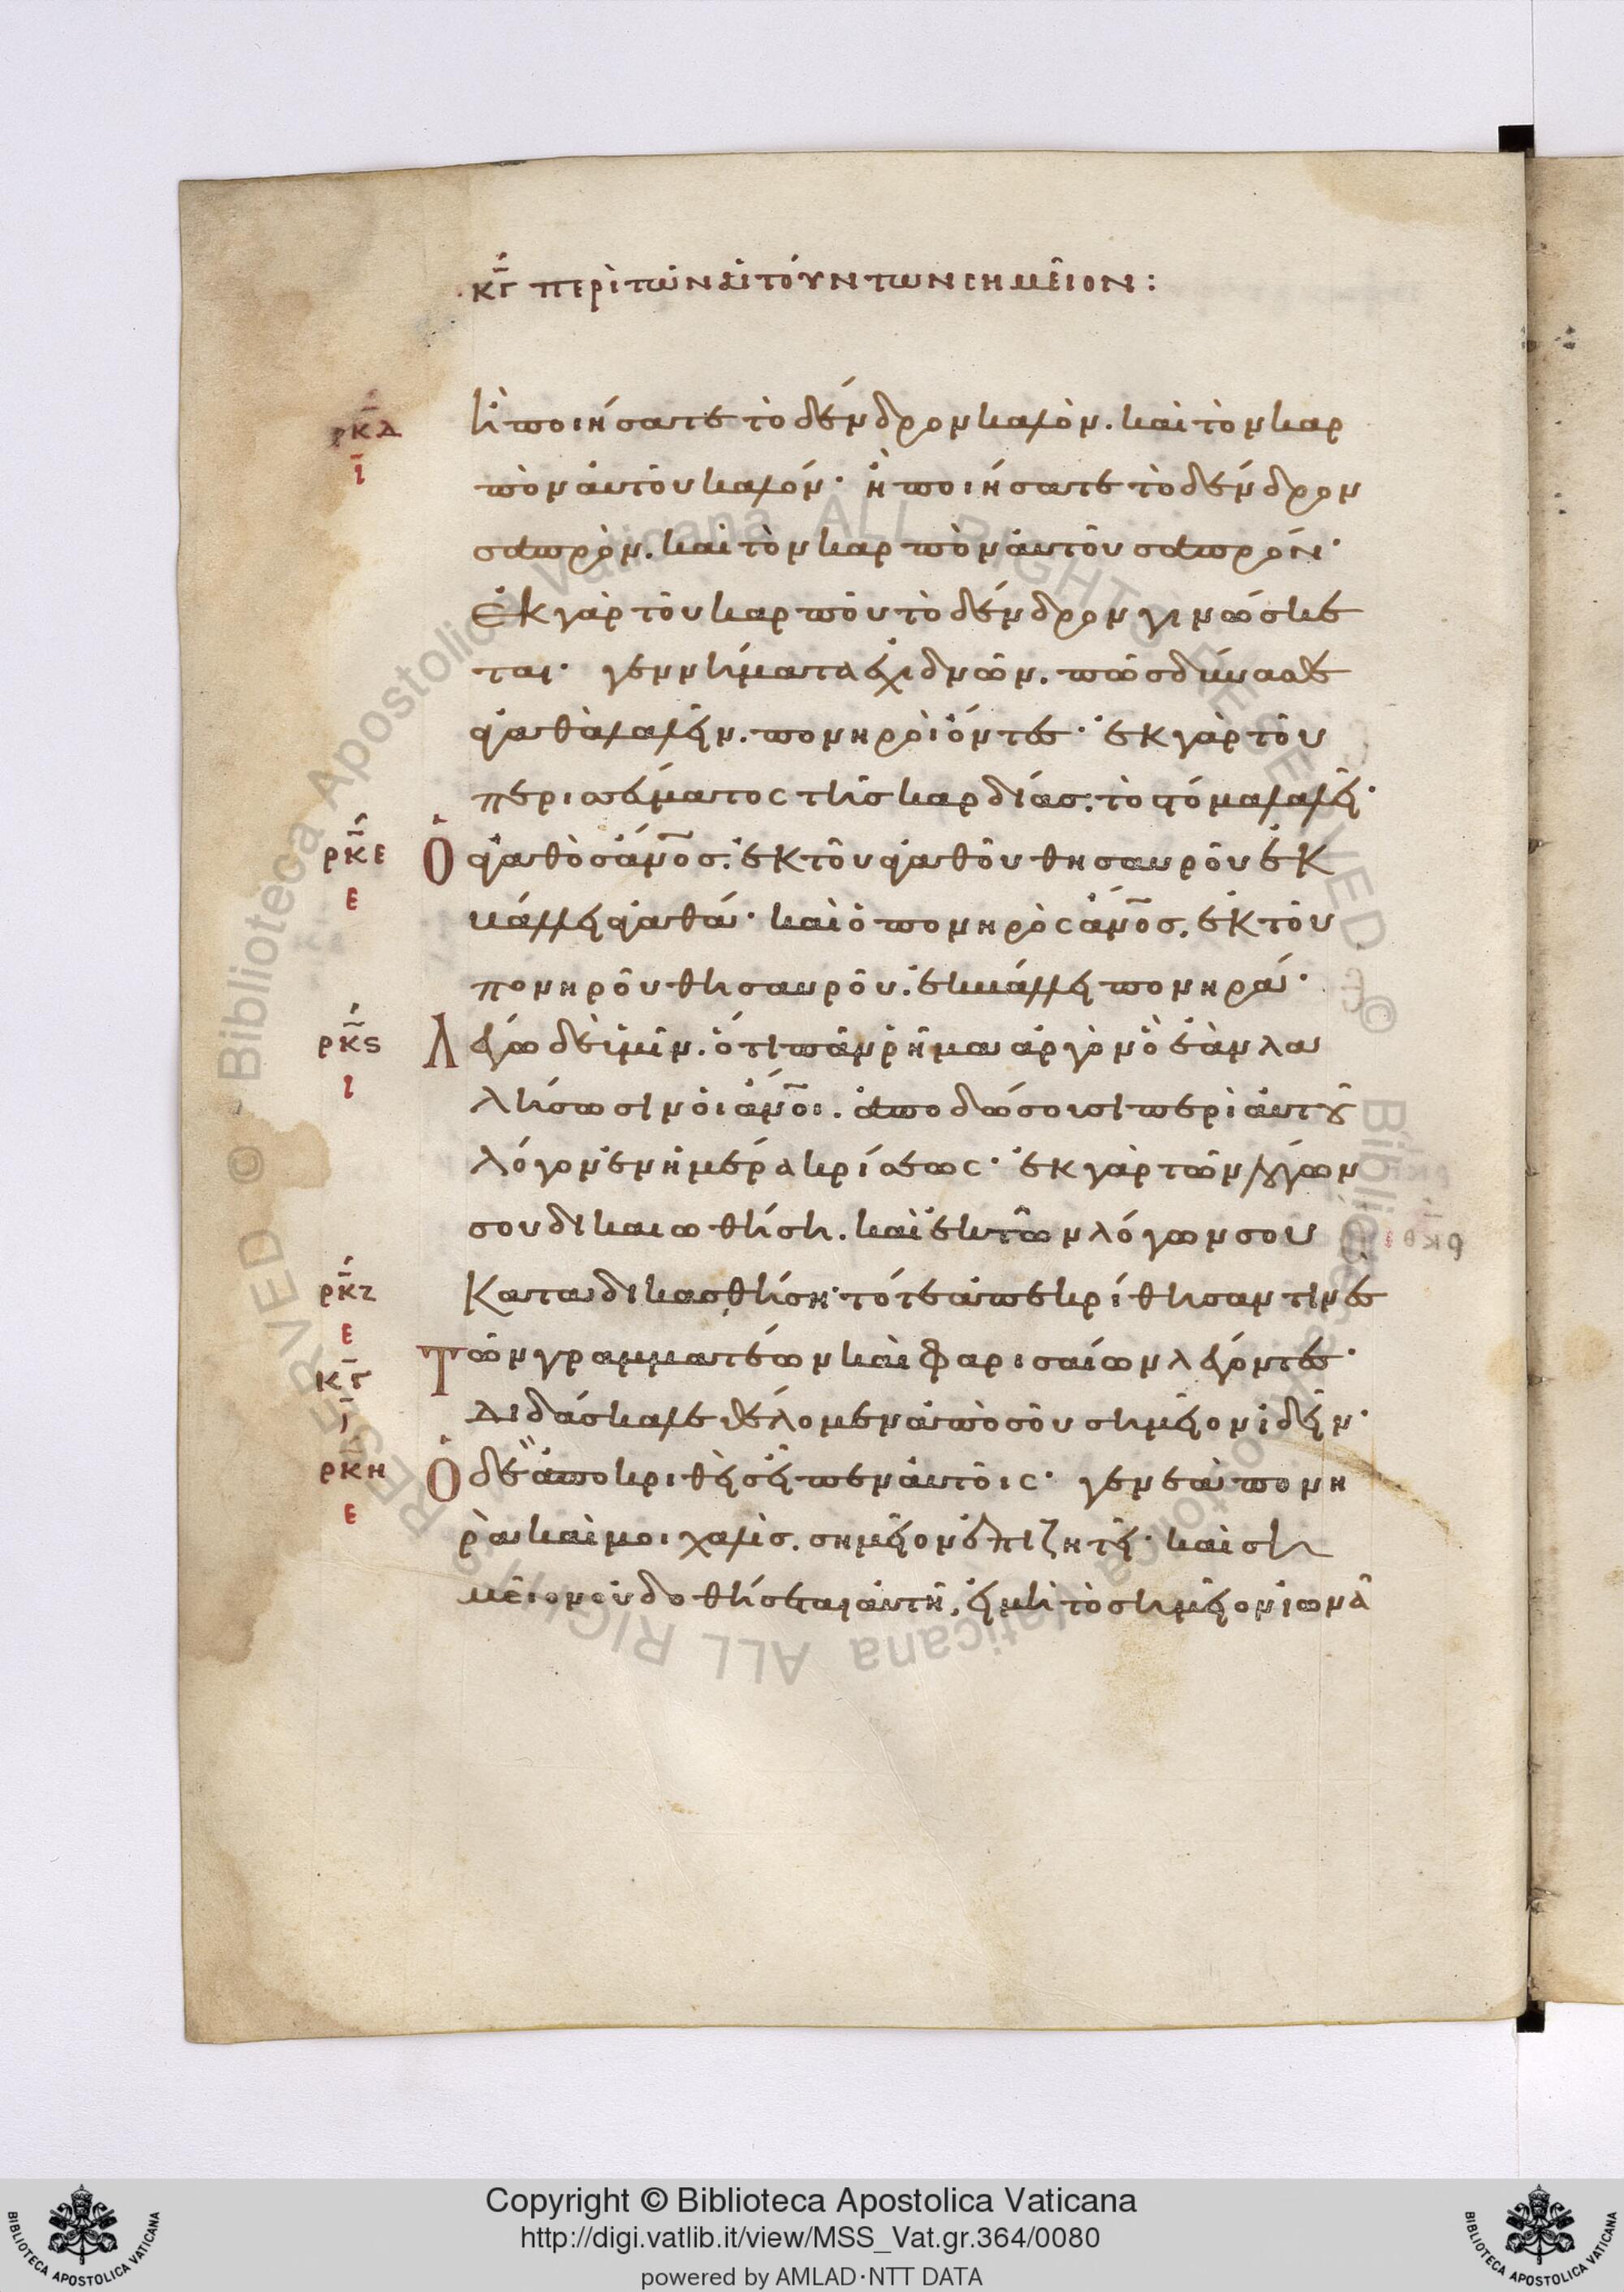 κγ περὶ τῶν αἰτούντων σημεῖον:
ρκδ
ι
ἢ ποιήσατε τὸ δένδρον καλὸν. καὶ τὸν καρ
πὸν αὐτοῦ καλόν· ἢ ποιήσατε τὸ δένδρον
σαπρὸν. καὶ τὸν καρπὸν αὐτοῦ σαπρόν·
ἐκ γὰρ τοῦ καρποῦ τὸ δένδρον γινώσκε
ται· γεννήματα ἐχιδνῶν. πῶς δύνασθε
ἀγαθὰ λαλεῖν. πονηροὶ ὄντες· ἐκ γὰρ τοῦ
περισσεύματος τῆς καρδίας. τὸ στόμα λαλεῖ·
ρκε
ε
Ὁ ἀγαθὸς ἄνος. ἐκ τοῦ ἀγαθοῦ θησαυροῦ ἐκ
βάλλει ἀγαθά· καὶ ὁ πονηρὸς ἄνος. ἐκ τοῦ
πονηροῦ θησαυροῦ. ἐκβάλλει πονηρά·
ρκς
ι
Λέγω δὲ ὑμῖν. ὅτι πᾶν ῥῆμα ἀργὸν ὃ ἐὰν λα
λήσωσιν οἱ ἄνοι. ἀποδώσουσι περὶ αὐτοῦ
λόγον ἐν ἡμέρα κρίσεως· ἐκ γὰρ τῶν λόγων
σου δικαιωθήση. καὶ ἐκ τῶν λόγων σου
ρκζ
ε
καταδικασθήση· τότε ἀπεκρίθησαν τινὲς
κγ
τῶν γραμματέων καὶ φαρισαίων λέγοντες·
διδάσκαλε θέλομεν ἀπὸ σοῦ σημεῖον ἰδεῖν·
ρκη
ε
Ὁ δὲ ἀποκριθεὶς εἶπεν αὐτοῖς· γενεὰ πονη
ρὰ καὶ μοιχαλὶς. σημεῖον ἐπιζητεῖ· καὶ ση
μεῖον οὐ δοθήσεται αὐτῆ, εἰ μὴ τὸ σημεῖον ἰωνᾶ
Copyright © Biblioteca Apostolica Vaticana
http://digi.vatlib.it/view/MSS_Vat.gr.364/0080
powered by AMLAD·NTT DATA
BIBLIOTECA APOSTOLICA VATICANA
BIBLIOTECA APOSTOLICA VATICANA
© Biblioteca Apostolica Vaticana ALL RIGHTS RESERVED
© Biblioteca Apostolica Vaticana ALL RIGHTS RESERVED